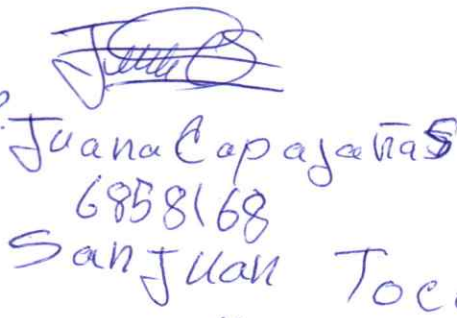 Juana Capajañas
6858168
San Juan Toc